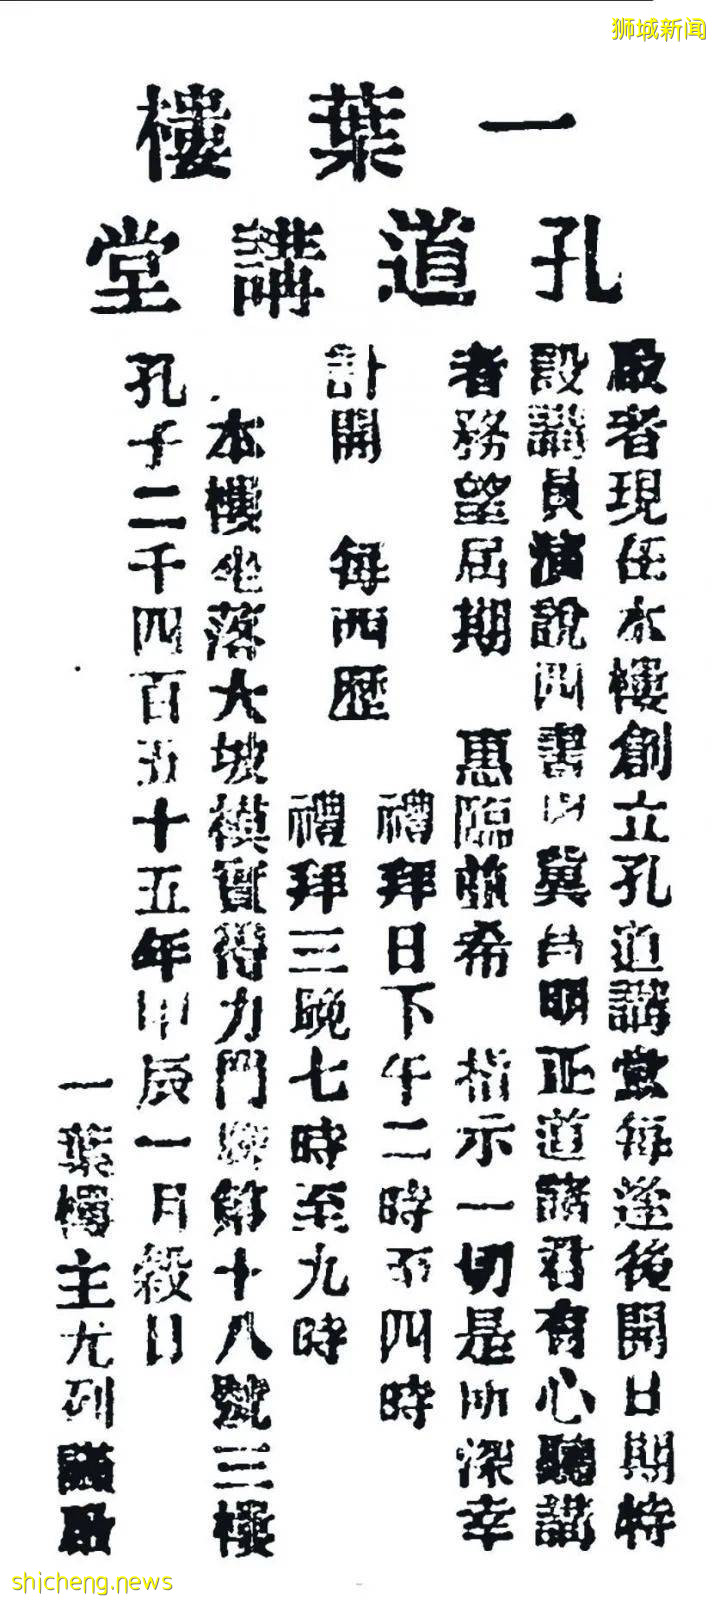 狮城新闻
一葉樓
孔道講堂
啟者現在本樓創立孔道講堂每逢後開日期特
設講員演說四書以冀昌明正道諸君有心聽講
者務望屆期 惠臨並希 指示一切是所深幸
計開 每西歷
禮拜日下午二時至四時
禮拜三晚七時至九時
本樓坐落大坡模實得力門牌第十八號三樓
孔子二千四百五十五年甲辰一月穀日
一葉樓主尤列謹啟
shicheng.news